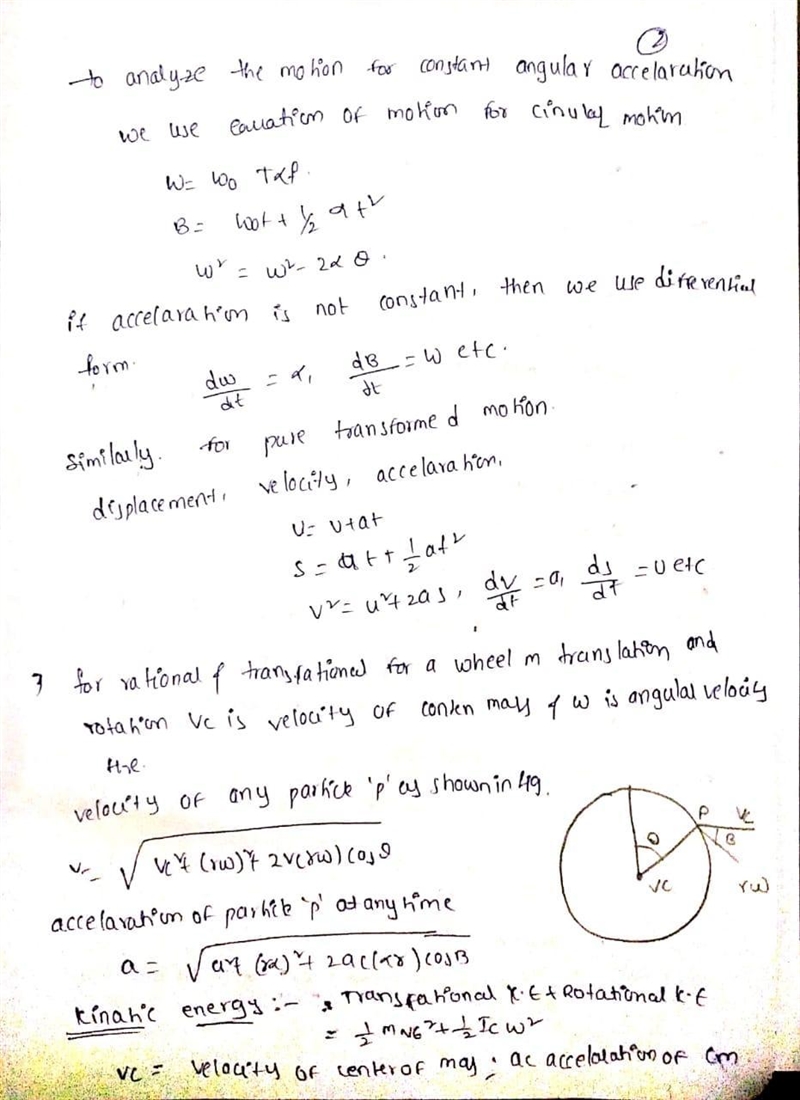 ②
to analyze the motion for constant angular accelaration
we use equation of motion for cirular motion
W= W0 Tαf.
B= W0t + ½ αt²
W² = W²- 2α θ.
if accelaration is not constant, then we use differential
form.
dw/dt = α, dB/dt = W etc.
similarly. for pure transformed motion.
displacement, velocity, accelaration.
U= U+at
S = ut + ½ at²
V² = u²+2as, dv/dt = a, ds/dt = U etc
7 for rational & transtational for a wheel m translation and
rotation Vc is velocity of conten mass & w is angular velocity
the.
velocity of any partice 'p' as shown in fig.
V= √Vc²+(rw)²+2Vc(rw)cosθ
P Vc
θ B
VC rw
accelaration of particle 'p' at any time
a = √a²+(rα)²+2ac(αr)cosB
Kinatic energy :- Transtational K.E + Rotational K.E
= ½ mVc²+½ Ic W²
Vc = velocity of center of mass ; ac accelaration of cm